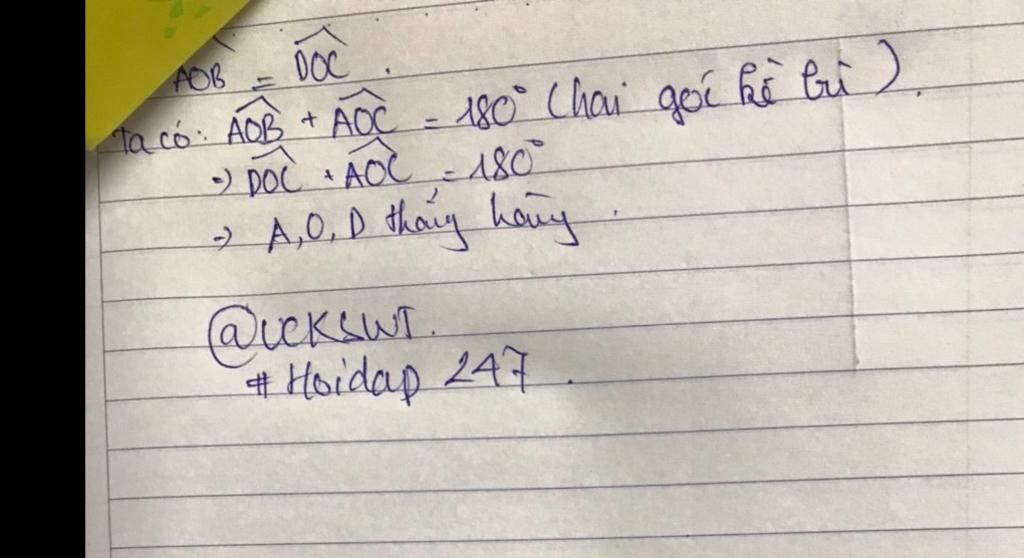 AOB = DOC .
Ta có: AOB + AOC = 180° (hai goć kề bù).
=> DOC + AOC = 180°
=> A, O, D thẳng hàng.
@UCKSWT.
# Hoidap 247.